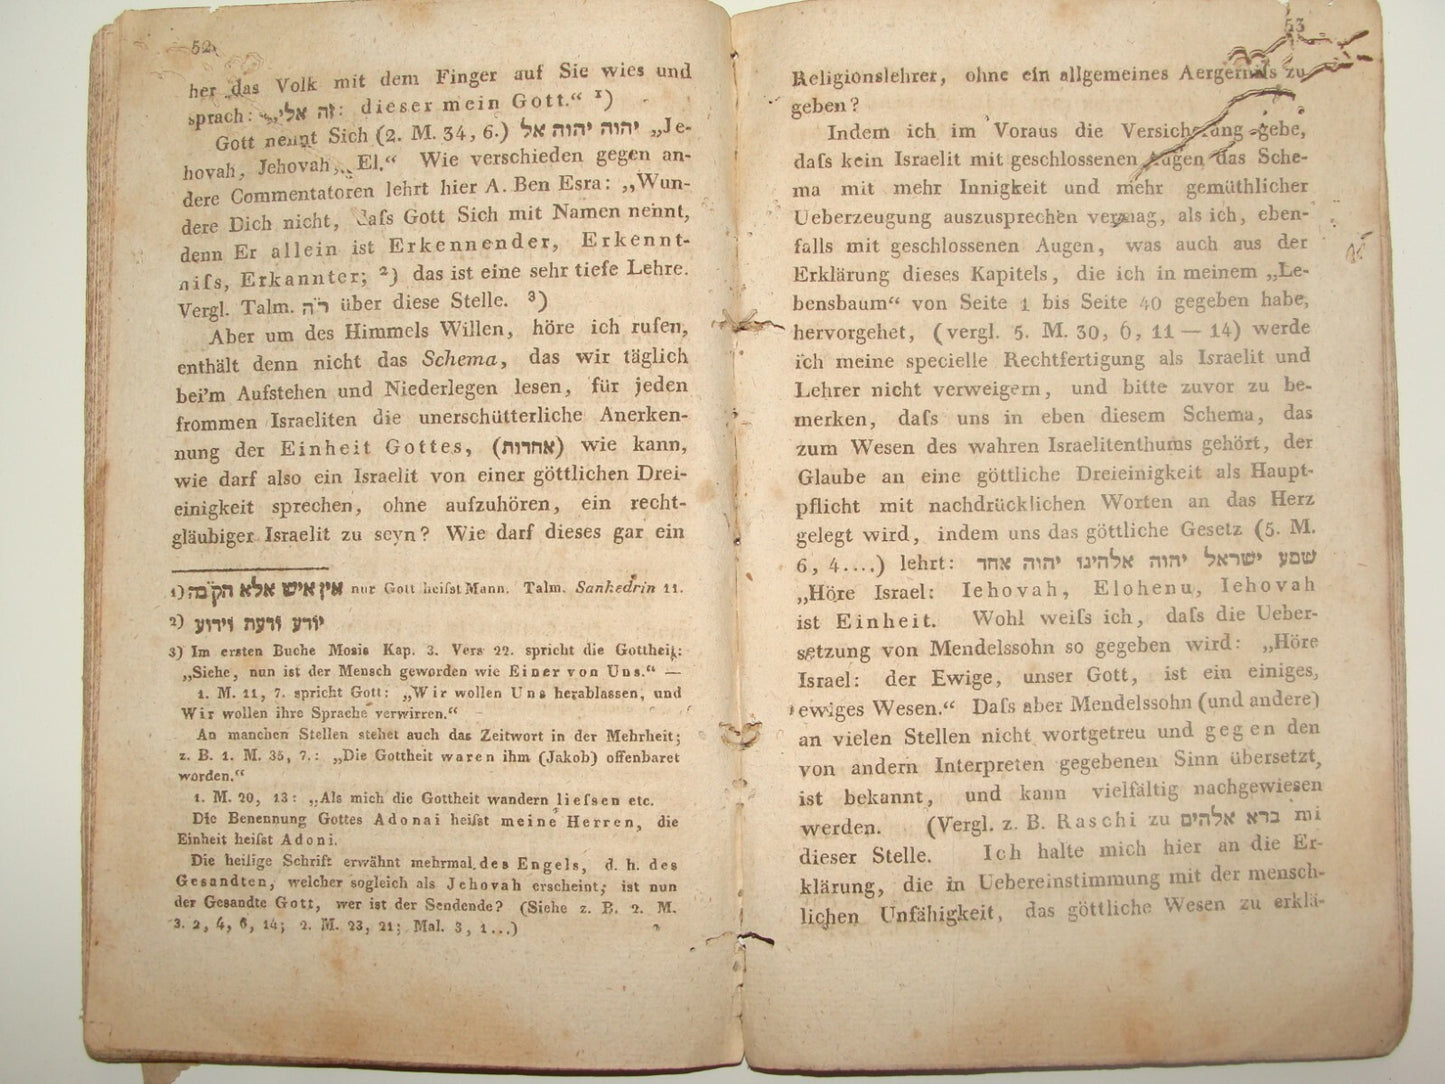 52
her das Volk mit dem Finger auf Sie wies und
sprach: „זה אלי: dieser mein Gott.“ 1)
Gott nennt Sich (2. M. 34, 6.) יהוה יהוה אל „Je-
hovah, Jehovah, El.“ Wie verschieden gegen an-
dere Commentatoren lehrt hier A. Ben Esra: „Wun-
dere Dich nicht, daſs Gott Sich mit Namen nennt,
denn Er allein ist Erkennender, Erkennt-
niſs, Erkannter; 2) das ist eine sehr tiefe Lehre.
Vergl. Talm. ר״ה über diese Stelle. 3)
Aber um des Himmels Willen, höre ich rufen,
enthält denn nicht das Schema, das wir täglich
bei'm Aufstehen und Niederlegen lesen, für jeden
frommen Israeliten die unerschütterliche Anerken-
nung der Einheit Gottes, (אחדות) wie kann,
wie darf also ein Israelit von einer göttlichen Drei-
einigkeit sprechen, ohne aufzuhören, ein recht-
gläubiger Israelit zu seyn? Wie darf dieses gar ein
1) אין איש אלא הק״בה nur Gott heiſst Mann. Talm. Sanhedrin 11.
2) יודע ודעה וידוע
3) Im ersten Buche Mosis Kap. 3. Vers 22. spricht die Gottheit:
„Siehe, nun ist der Mensch geworden wie Einer von Uns.“ —
1. M. 11, 7. spricht Gott: „Wir wollen Uns herablassen, und
Wir wollen ihre Sprache verwirren.“
An manchen Stellen stehet auch das Zeitwort in der Mehrheit;
z. B. 1. M. 35, 7.: „Die Gottheit waren ihm (Jakob) offenbaret
worden.“
1. M. 20, 13: „Als mich die Gottheit wandern lieſsen etc.
Die Benennung Gottes Adonai heiſst meine Herren, die
Einheit heiſst Adoni.
Die heilige Schrift erwähnt mehrmal des Engels, d. h. des
Gesandten, welcher sogleich als Jehovah erscheint; ist nun
der Gesandte Gott, wer ist der Sendende? (Siehe z. B. 2. M.
3. 2, 4, 6, 14; 2. M. 23, 21; Mal. 3, 1...)
53
Religionslehrer, ohne ein allgemeines Aergerniſs zu
geben?
Indem ich im Voraus die Versicherung gebe,
daſs kein Israelit mit geschlossenen Augen das Sche-
ma mit mehr Innigkeit und mehr gemüthlicher
Ueberzeugung auszusprechen vermag, als ich, eben-
falls mit geschlossenen Augen, was auch aus der
Erklärung dieses Kapitels, die ich in meinem „Le-
bensbaum“ von Seite 1 bis Seite 40 gegeben habe,
hervorgehet, (vergl. 5. M. 30, 6, 11 — 14) werde
ich meine specielle Rechtfertigung als Israelit und
Lehrer nicht verweigern, und bitte zuvor zu be-
merken, daſs uns in eben diesem Schema, das
zum Wesen des wahren Israelitenthums gehört, der
Glaube an eine göttliche Dreieinigkeit als Haupt-
pflicht mit nachdrücklichen Worten an das Herz
gelegt wird, indem uns das göttliche Gesetz (5. M.
6, 4....) lehrt: שמע ישראל יהוה אלהינו יהוה אחד
„Höre Israel: Iehovah, Elohenu, Iehovah
ist Einheit. Wohl weiſs ich, daſs die Ueber-
setzung von Mendelssohn so gegeben wird: „Höre
Israel: der Ewige, unser Gott, ist ein einiges,
ewiges Wesen.“ Daſs aber Mendelssohn (und andere)
an vielen Stellen nicht wortgetreu und gegen den
von andern Interpreten gegebenen Sinn übersetzt,
ist bekannt, und kann vielfältig nachgewiesen
werden. (Vergl. z. B. Raschi zu ברא אלהים mi
dieser Stelle. Ich halte mich hier an die Er-
klärung, die in Uebereinstimmung mit der mensch-
lichen Unfähigkeit, das göttliche Wesen zu erklä-